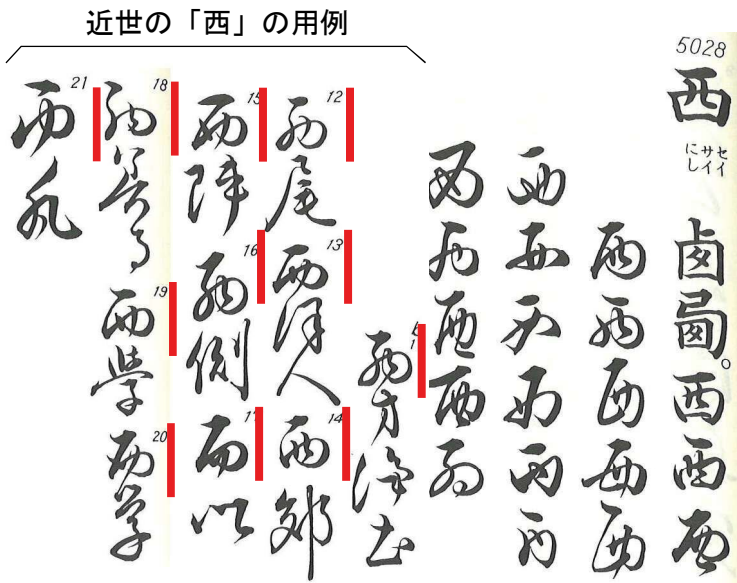 近世の「西」の用例
5028
西
セイ
サイ
にし
卥
西西西
西西西西西
西西西西西西
西西西西西
11 西方浄土
12 西尾
13 西洋人
14 西郊
15 西陣
16 西側
17 西以
18 西
19 西學
20 西学
21 西瓜